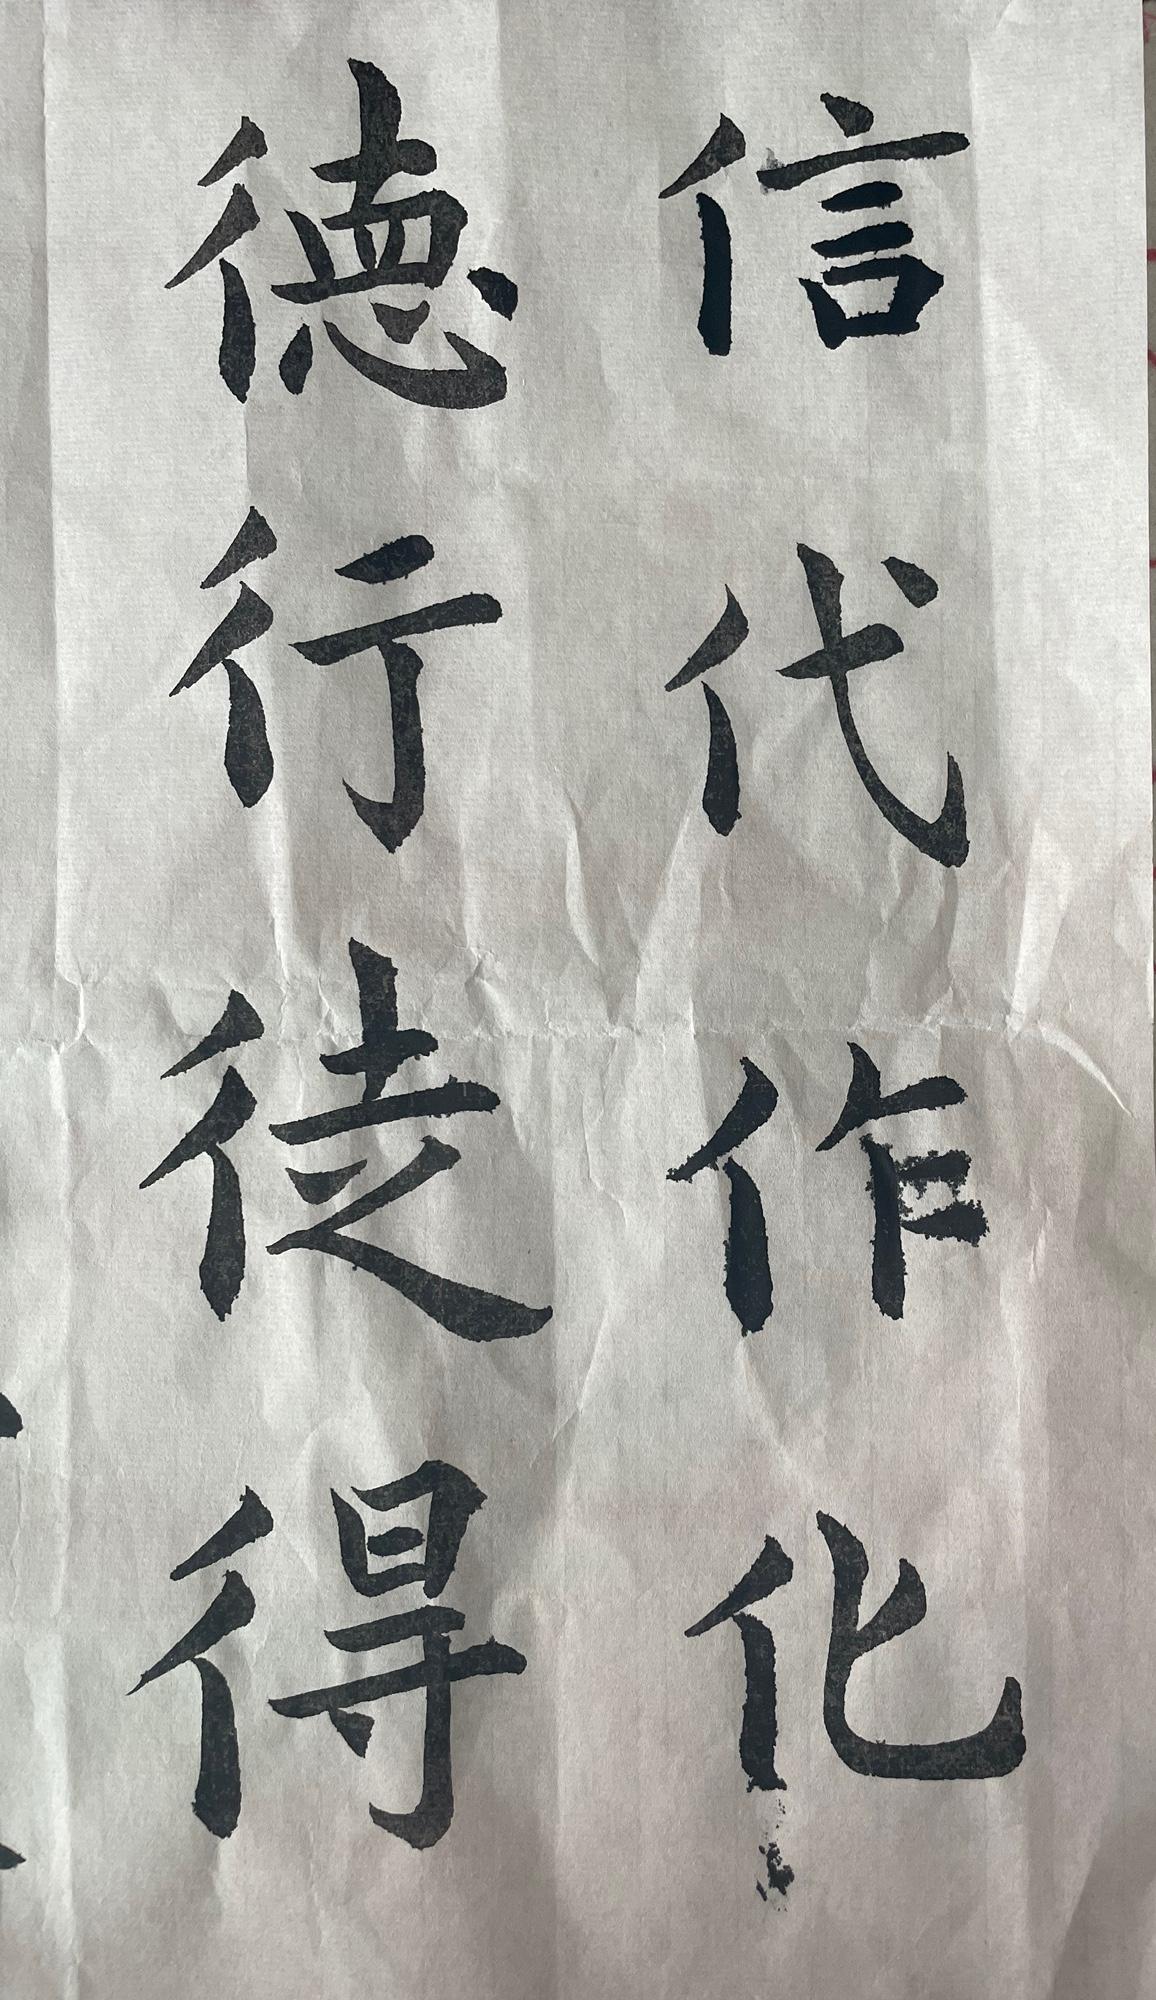 信代作化
德行徒得